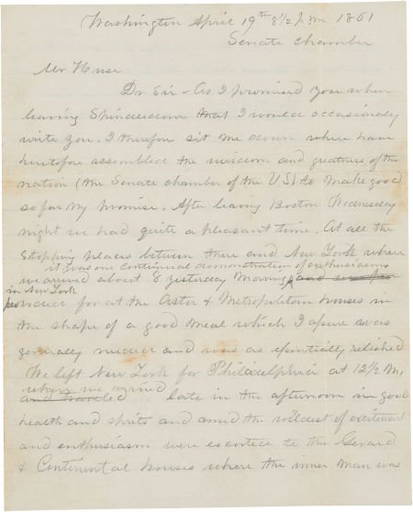 Washington April 19th 8 1/2 P.M. 1861
Senate Chamber
Mr Huse
Dr Sir - As I promised you when
leaving that I would occasionaly
write you. I therefore sit me down where have
heretofore assembled the wisdom and greatness of the
nation (the Senate chamber of the U.S) to make good
so far my promise. After leaving Boston Wednesday
night we had quite a pleasant time. At all the
Stopping places between there and New York where
it was one continual demonstration of enthusiasm
we arrived about 8 yesterday morning and
in New York
for at the Astor & Metropolitan houses in
the shape of a good meal which I assure was
needed and was as relished
We left New York for Philadelphia at 12 1/2 M,
where we arrived
and traveled late in the afternoon in good
health and spirits and amid the wildest of excitement
and enthusiasm were escorted to the Girard
& Continental houses where the inner man was